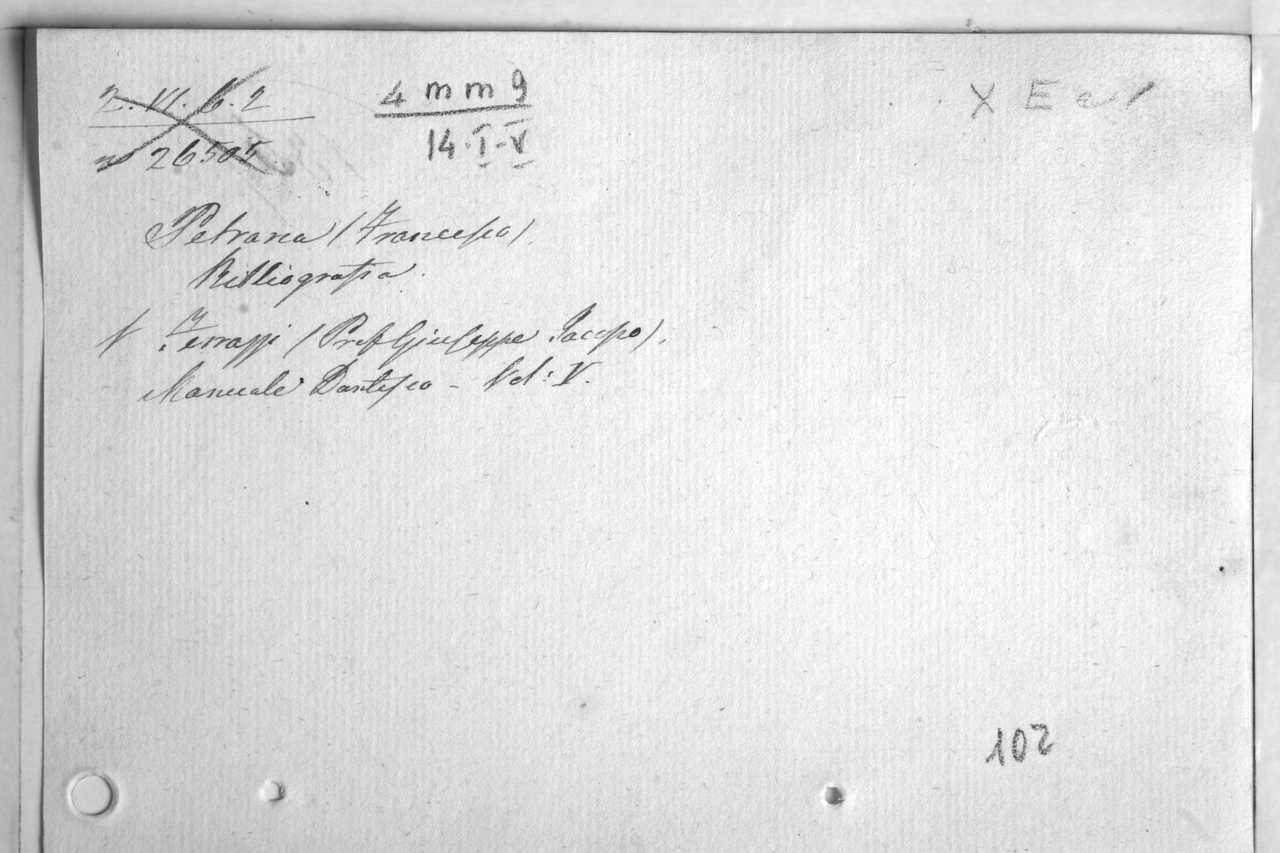 2. VI. 6. 2
4 m m 9
X E e 1
n° 26505
14. I-V
Petrarca (Francesco).
Bibliografia.
V. Ferrazzi (Prof. Giuseppe Jacopo).
Manuale Dantesco - Vol: V.
102